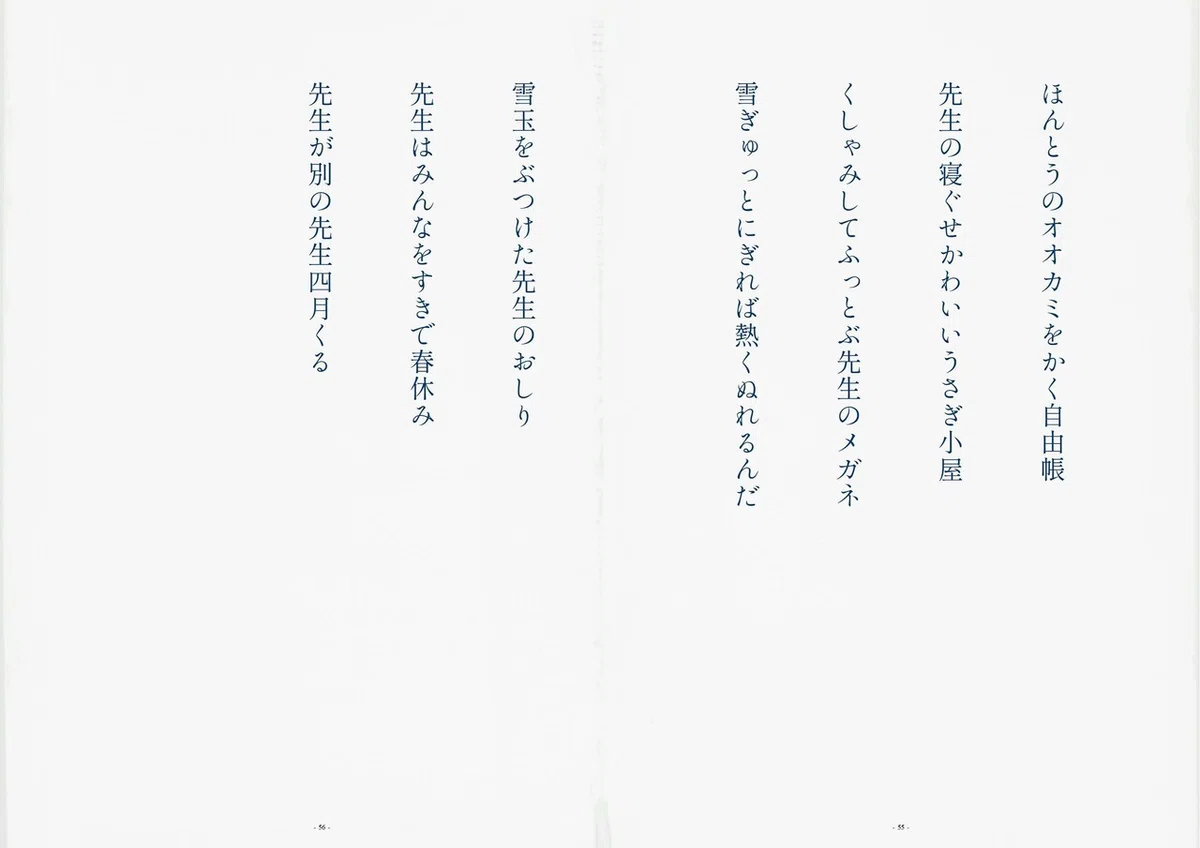 ほんとうのオオカミをかく自由帳
先生の寝ぐせかわいいうさぎ小屋
くしゃみしてふっとぶ先生のメガネ
雪ぎゅっとにぎれば熱くぬれるんだ
- 55 -
雪玉をぶつけた先生のおしり
先生はみんなをすきで春休み
先生が別の先生四月くる
- 56 -